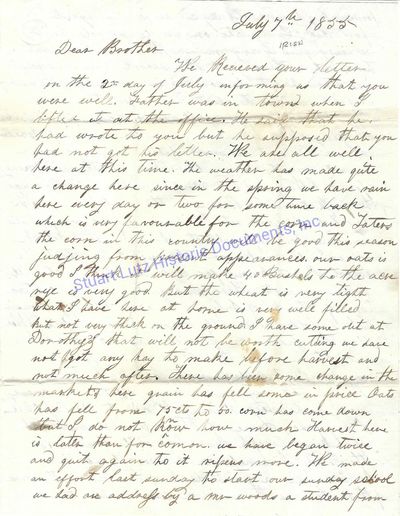 July 7th 1855
IRISH
Dear Brother
We Received your letter
on the 2d day of July informing us that you
were well. Father was in town when I
lifted it at the office. He said that he
had wrote to you but he supposed that you
had not got his letter. We are all well
here at this time. The weather has made quite
a change here since in the spring we have rain
here every day or two for some time back
which is very favourable for the corn and Taters
the corn in this country will be good this season
judging from present appearances. our oats is
good I think it will make 40 Bushels to the acre
rye is very good. But the wheat is very light
what I have here at home is very well filled
but not very thick on the ground I have some out at
Dorothy's that will not be worth cutting we have
not got any hay to make before harvest and
not much after. There has been some change in the
markets here grain has fell some in price Oats
has fell from 75cts to 50. corn has come down
but I do not know how much. Harvest here
is later than for common. we have began twice
and quit again to it ripens more. We made
an effort last sunday to start our sunday school
we had an address by a mr woods a student from
Stuart Lutz Historic Documents, Inc.